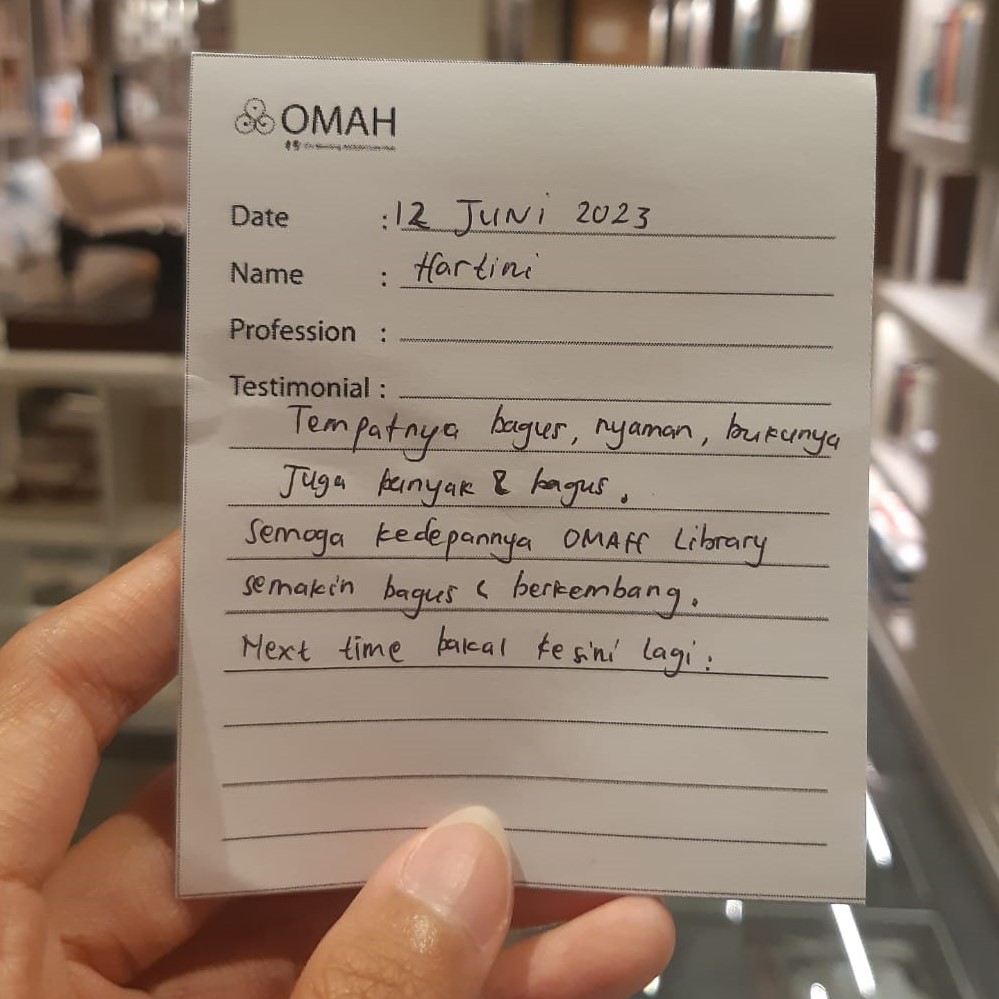 OMAH
Date : 12 Juni 2023
Name : Hartini
Profession :
Testimonial :
Tempatnya bagus, nyaman, bukunya
Juga banyak & bagus.
Semoga kedepannya OMAH Library
semakin bagus & berkembang.
Next time bakal kesini lagi.